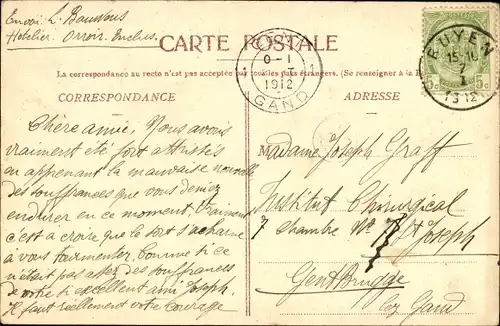 Envoi L. Bauwens
Hotelier. Orroir. Enclus.
CARTE POSTALE
La correspondance au recto n'est pas acceptée par tous les pays étrangers. (Se renseigner à la
CORRESPONDANCE
ADRESSE
GENT
0-1
1912
GAND
15-16
7
I
1912
5c 5c
Chère amie, Nous avons
vraiment été fort attristés
en apprenant la mauvaise nouvelle
des souffrances que vous devez
endurer en ce moment. Vraiment
c'est a croire que le sort s'acharne
à vous tourmenter. Comme si ce
n'était pas assez des souffrances
de votre si excellent ami Joseph.
Il faut réellement votre courage
Madame Joseph Graff
Institut Chirurgical
7 chambre No 7 St Joseph
Gentbrugge
lez Gand